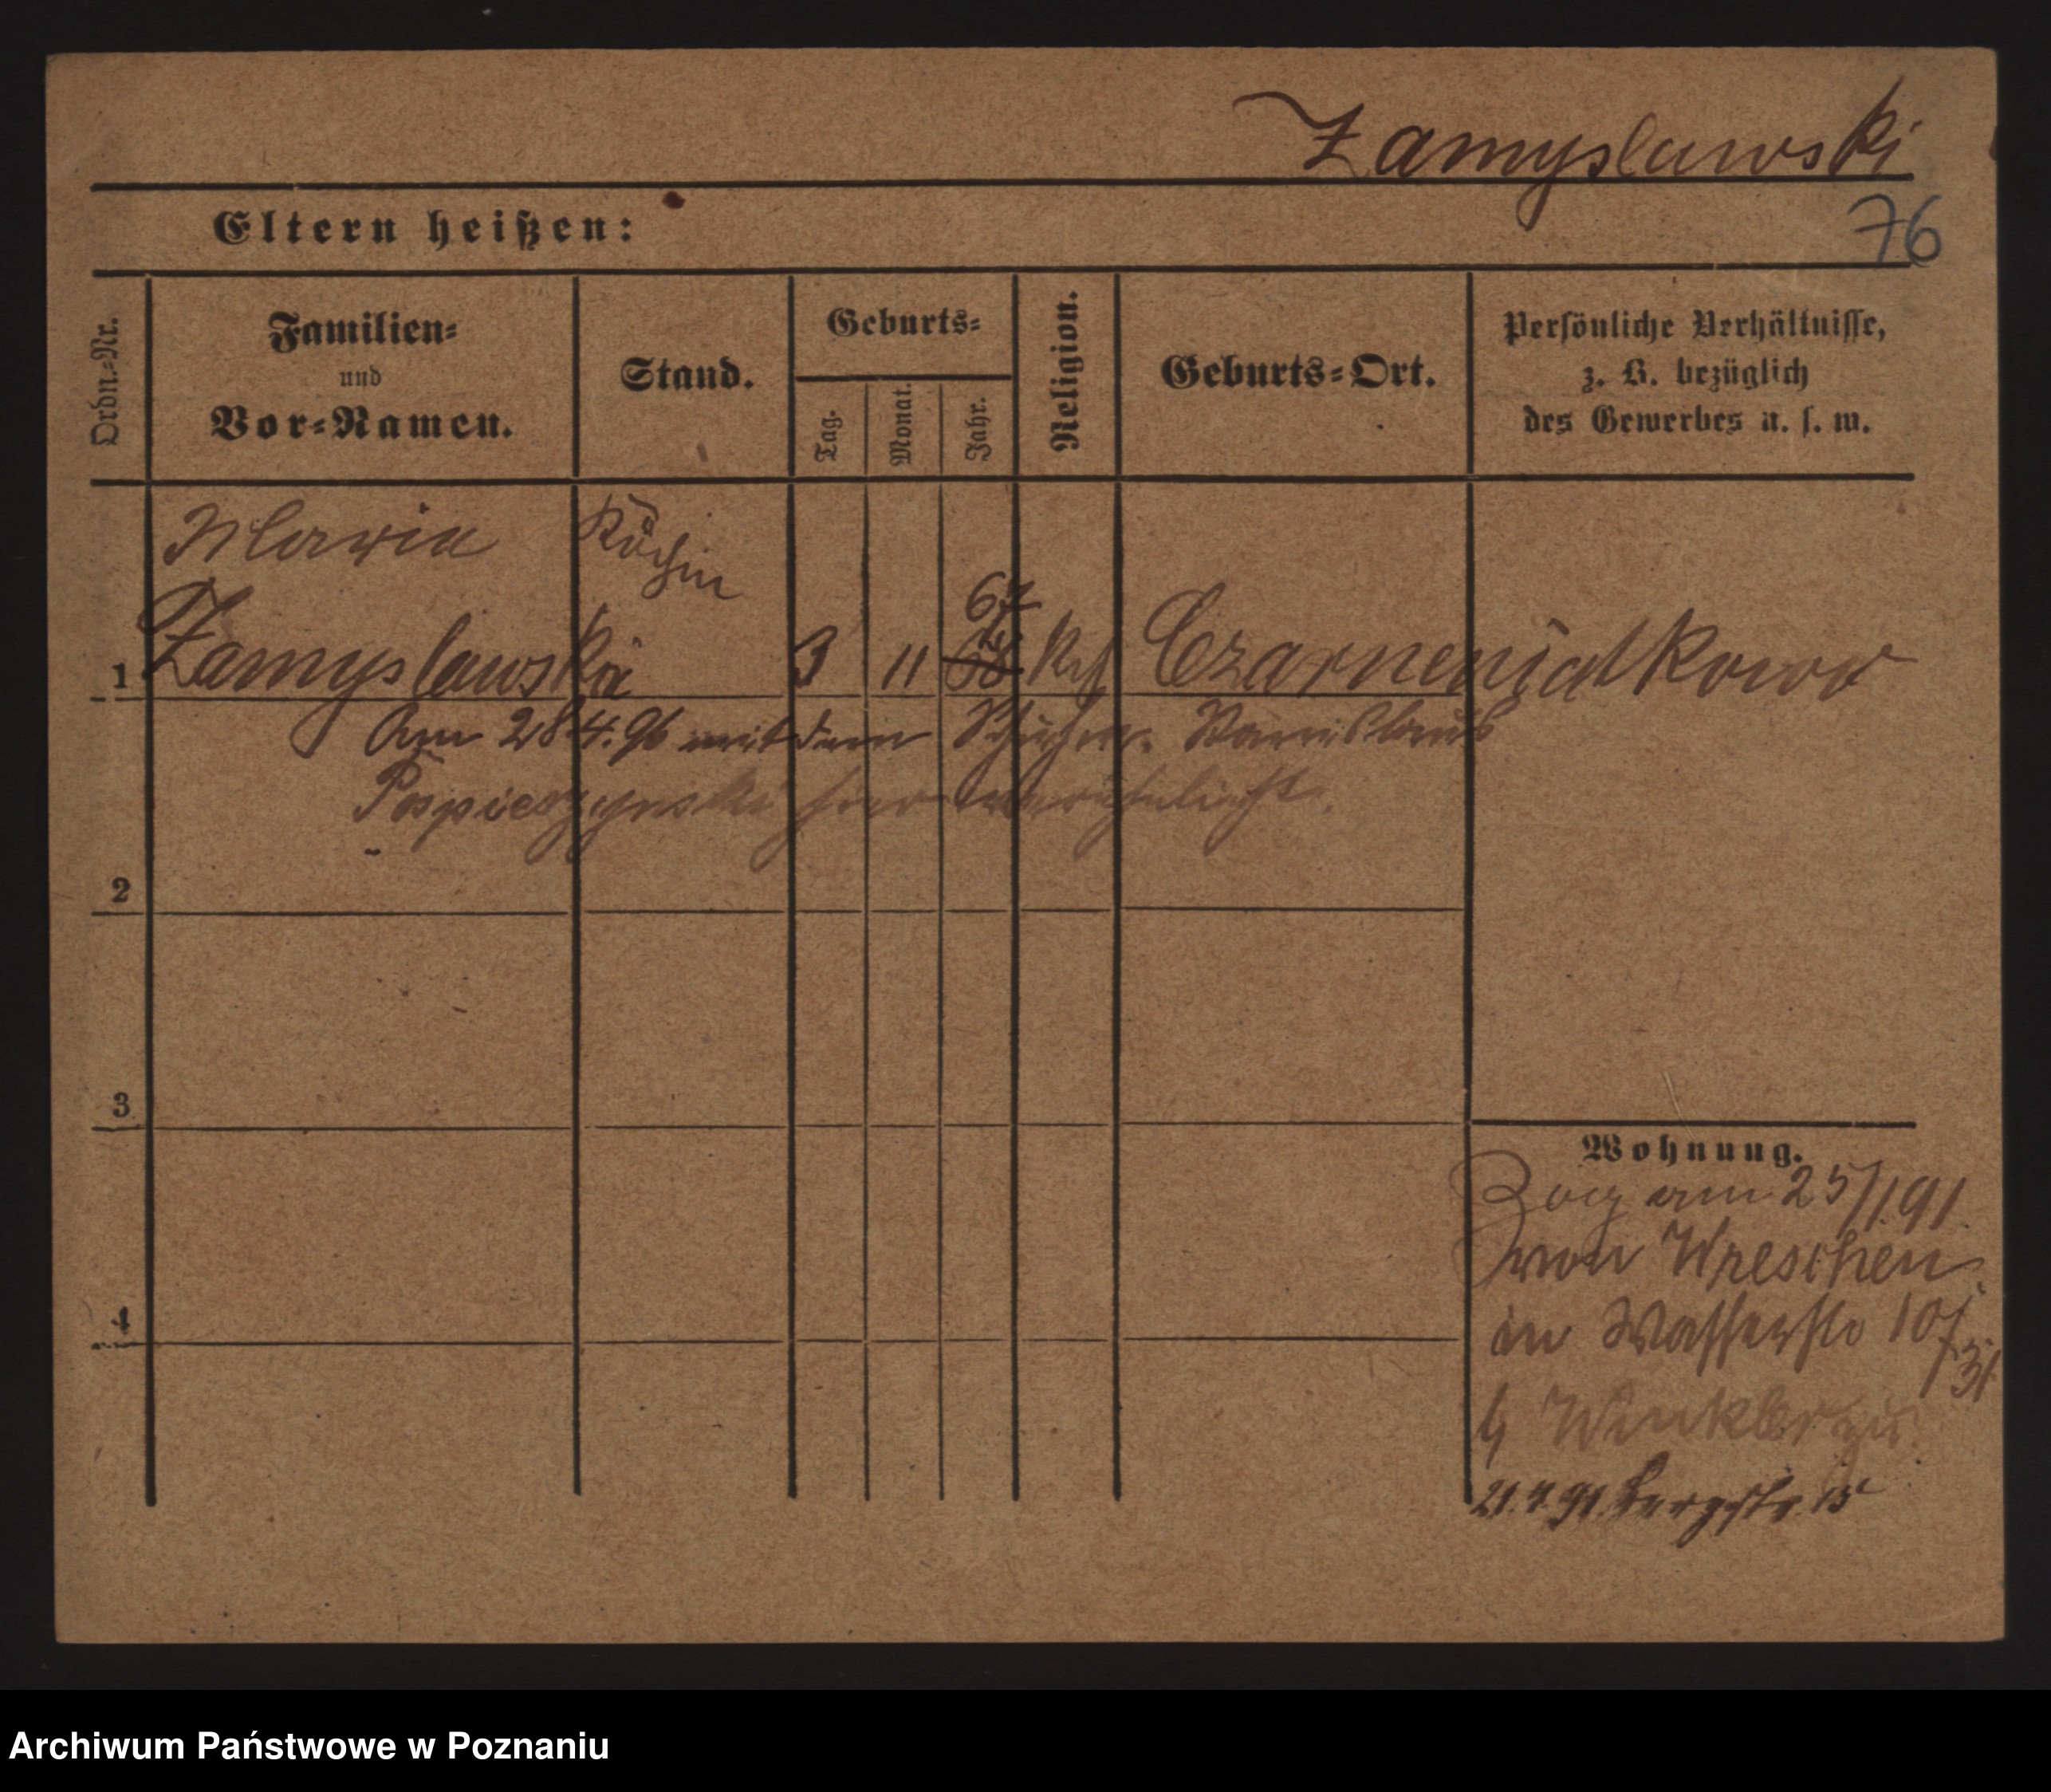 Zamyslawski
Eltern heißen:
76
Ordn.-Nr.
Familien-
und
Vor-Namen.
Stand.
Geburts-
Tag.
Monat.
Jahr.
Religion.
Geburts-Ort.
Persönliche Verhältnisse,
z. B. bezüglich
des Gewerbes u. s. w.
Maria
Köchin
67
1 Zamyslawska 3 11 68 Kt Czarneniatkowo
Am 28.4.96 mit dem Schuhm. Stanislaus
Pospieszynski hier verehelicht.
2
3
4
Wohnung.
Zog am 25/1.91.
von Wreschen
in Wasserstr 10/
31
b Winkler zu.
21.4.91. Bergstr. 15
Archiwum Państwowe w Poznaniu